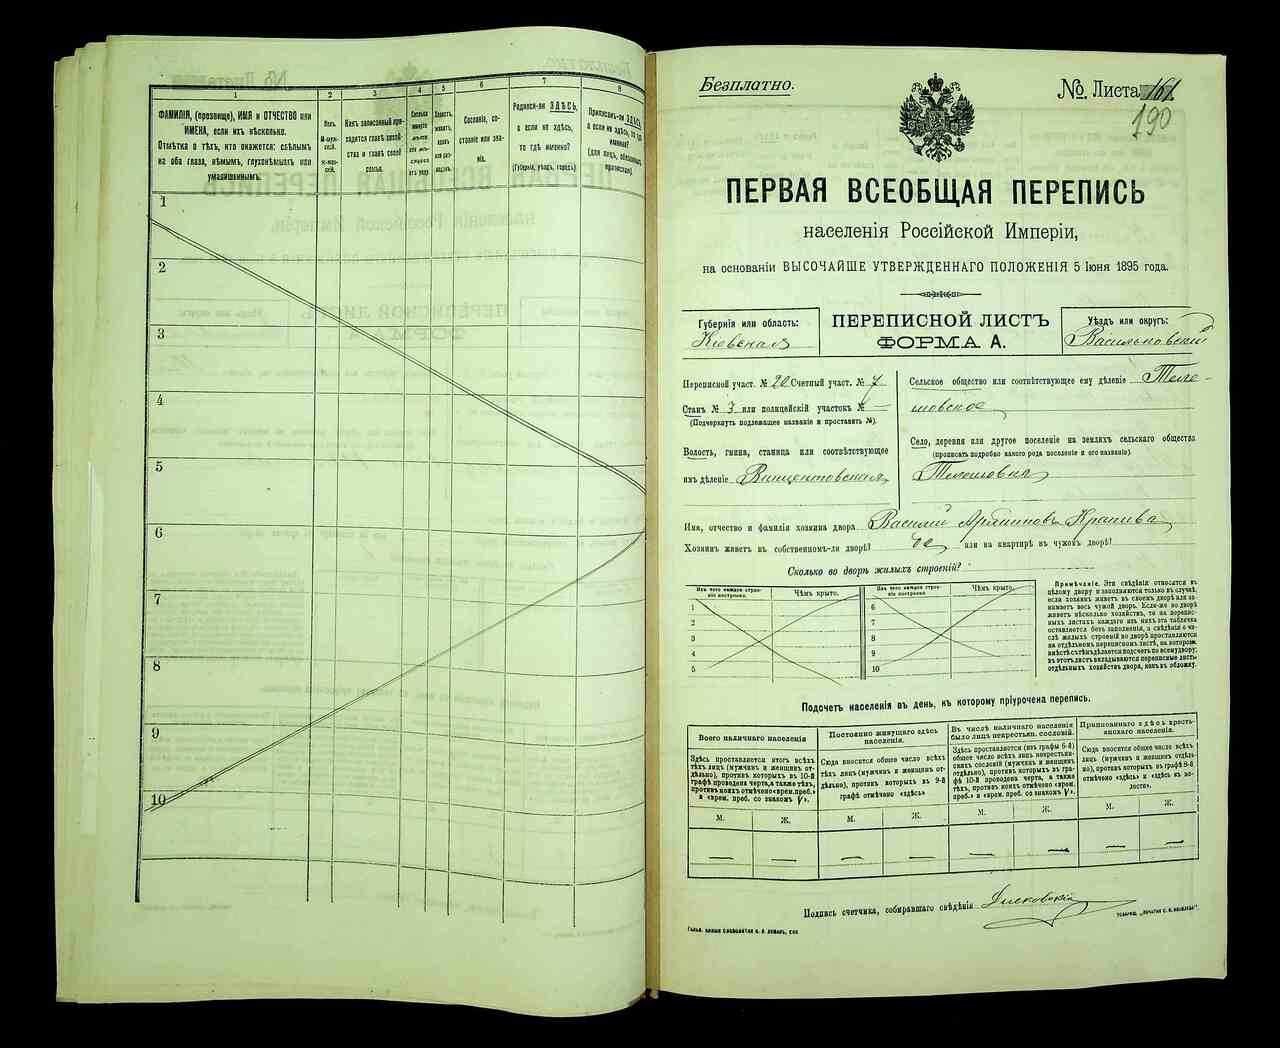 1
2
3
4
5
6
7
8
ФАМИЛІЯ, (прозвище), ИМЯ и ОТЧЕСТВО или
ИМЕНА, если ихъ нѣсколько.
Отмѣтка о тѣхъ, кто окажется: слѣпымъ
на оба глаза, нѣмымъ, глухонѣмымъ или
умалишеннымъ.
Полъ.
Какъ записанный при-
ходится главѣ хозяй-
ства и главѣ своей
семьи.
Сословіе, со-
стояніе или зва-
ніе.
Родился-ли ЗДѢСЬ,
а если не здѣсь,
то гдѣ именно?
(Губернія, уѣздъ, городъ)
Приписанъ-ли ЗДѢСЬ,
а если не здѣсь, то гдѣ
именно?
1
2
3
4
5
6
7
8
9
10
Безплатно.
№ Листа 161.
190
ПЕРВАЯ ВСЕОБЩАЯ ПЕРЕПИСЬ
населенія Россійской Имперіи,
на основаніи ВЫСОЧАЙШЕ УТВЕРЖДЕННАГО ПОЛОЖЕНІЯ 5 Іюня 1895 года.
Губернія или область:
Кіевская
ПЕРЕПИСНОЙ ЛИСТЪ
ФОРМА А.
Уѣздъ или округъ:
Васильковскій
Переписной участ. № 20 Счетный участ. № 7
Станъ № 3 или полицейскій участокъ № —
(Подчеркнуть подлежащее названіе и проставить №).
Волость, гмина, станица или соотвѣтствующее
имъ дѣленіе Винцентовская
Сельское общество или соотвѣтствующее ему дѣленіе Теле-
шовское
Село, деревня или другое поселеніе на земляхъ сельскаго общества
(прописать подробно какого рода поселеніе и его названіе).
Телешовка
Имя, отчество и фамилія хозяина двора Василій Кранива
Хозяинъ живетъ въ собственномъ-ли дворѣ? да или на квартирѣ въ чужомъ дворѣ?
Сколько во дворѣ жилыхъ строеній?
Изъ чего каждое строе-
ніе построено.
Чѣмъ крыто.
Изъ чего каждое строе-
ніе построено
Чѣмъ крыто.
1
2
3
4
5
6
7
8
9
10
Примѣчаніе. Эти свѣдѣнія относятся къ
цѣлому двору и заполняются только въ случаѣ,
если хозяинъ живетъ въ своемъ дворѣ или за-
нимаетъ весь чужой дворъ. Если-же во дворѣ
живетъ нѣсколько хозяйствъ, то на перепис-
ныхъ листахъ каждаго изъ нихъ эта табличка
оставляется безъ заполненія, а свѣдѣнія о чи-
слѣ жилыхъ строеній во дворѣ проставляются
на отдѣльномъ переписномъ листѣ, на которомъ
вмѣстѣ съ тѣмъ дѣлается подсчетъ по всему двору;
въ этотъ листъ вкладываются переписные листы
отдѣльныхъ хозяйствъ двора, какъ въ обложку.
Подсчетъ населенія въ день, къ которому пріурочена перепись.
Всего наличнаго населенія
Здѣсь проставляется итогъ всѣхъ
тѣхъ лицъ (мужчинъ и женщинъ от-
дѣльно), противъ которыхъ въ 10-й
графѣ проведена черта, а также тѣхъ,
противъ коихъ отмѣчено «врем. преб.»
и «врем. преб. со знакомъ V».
Постоянно живущаго здѣсь
населенія.
Сюда вносится общее число всѣхъ
тѣхъ лицъ (мужчинъ и женщинъ от-
дѣльно), противъ которыхъ въ 9-й
графѣ отмѣчено «здѣсь»
Въ числѣ наличнаго населенія
было лицъ некрестьян. сословій.
Здѣсь проставляется (изъ графы 6-й)
общее число всѣхъ лицъ некрестьян-
скихъ сословій (мужчинъ и женщинъ
отдѣльно), противъ которыхъ въ гра-
фѣ 10-й проведена черта, а также
тѣхъ, противъ коихъ отмѣчено «врем.
преб.» и «врем. преб. со знакомъ V».
Приписаннаго здѣсь кресть-
янскаго населенія.
Сюда вносится общее число всѣхъ
лицъ (мужчинъ и женщинъ отдѣль-
но), противъ которыхъ въ графѣ 8-й
отмѣчено «здѣсь» и «здѣсь въ во-
лости».
М.
Ж.
М.
Ж.
М.
Ж.
М.
Ж.
— — — — — — — —
Подпись счетчика, собиравшаго свѣдѣнія